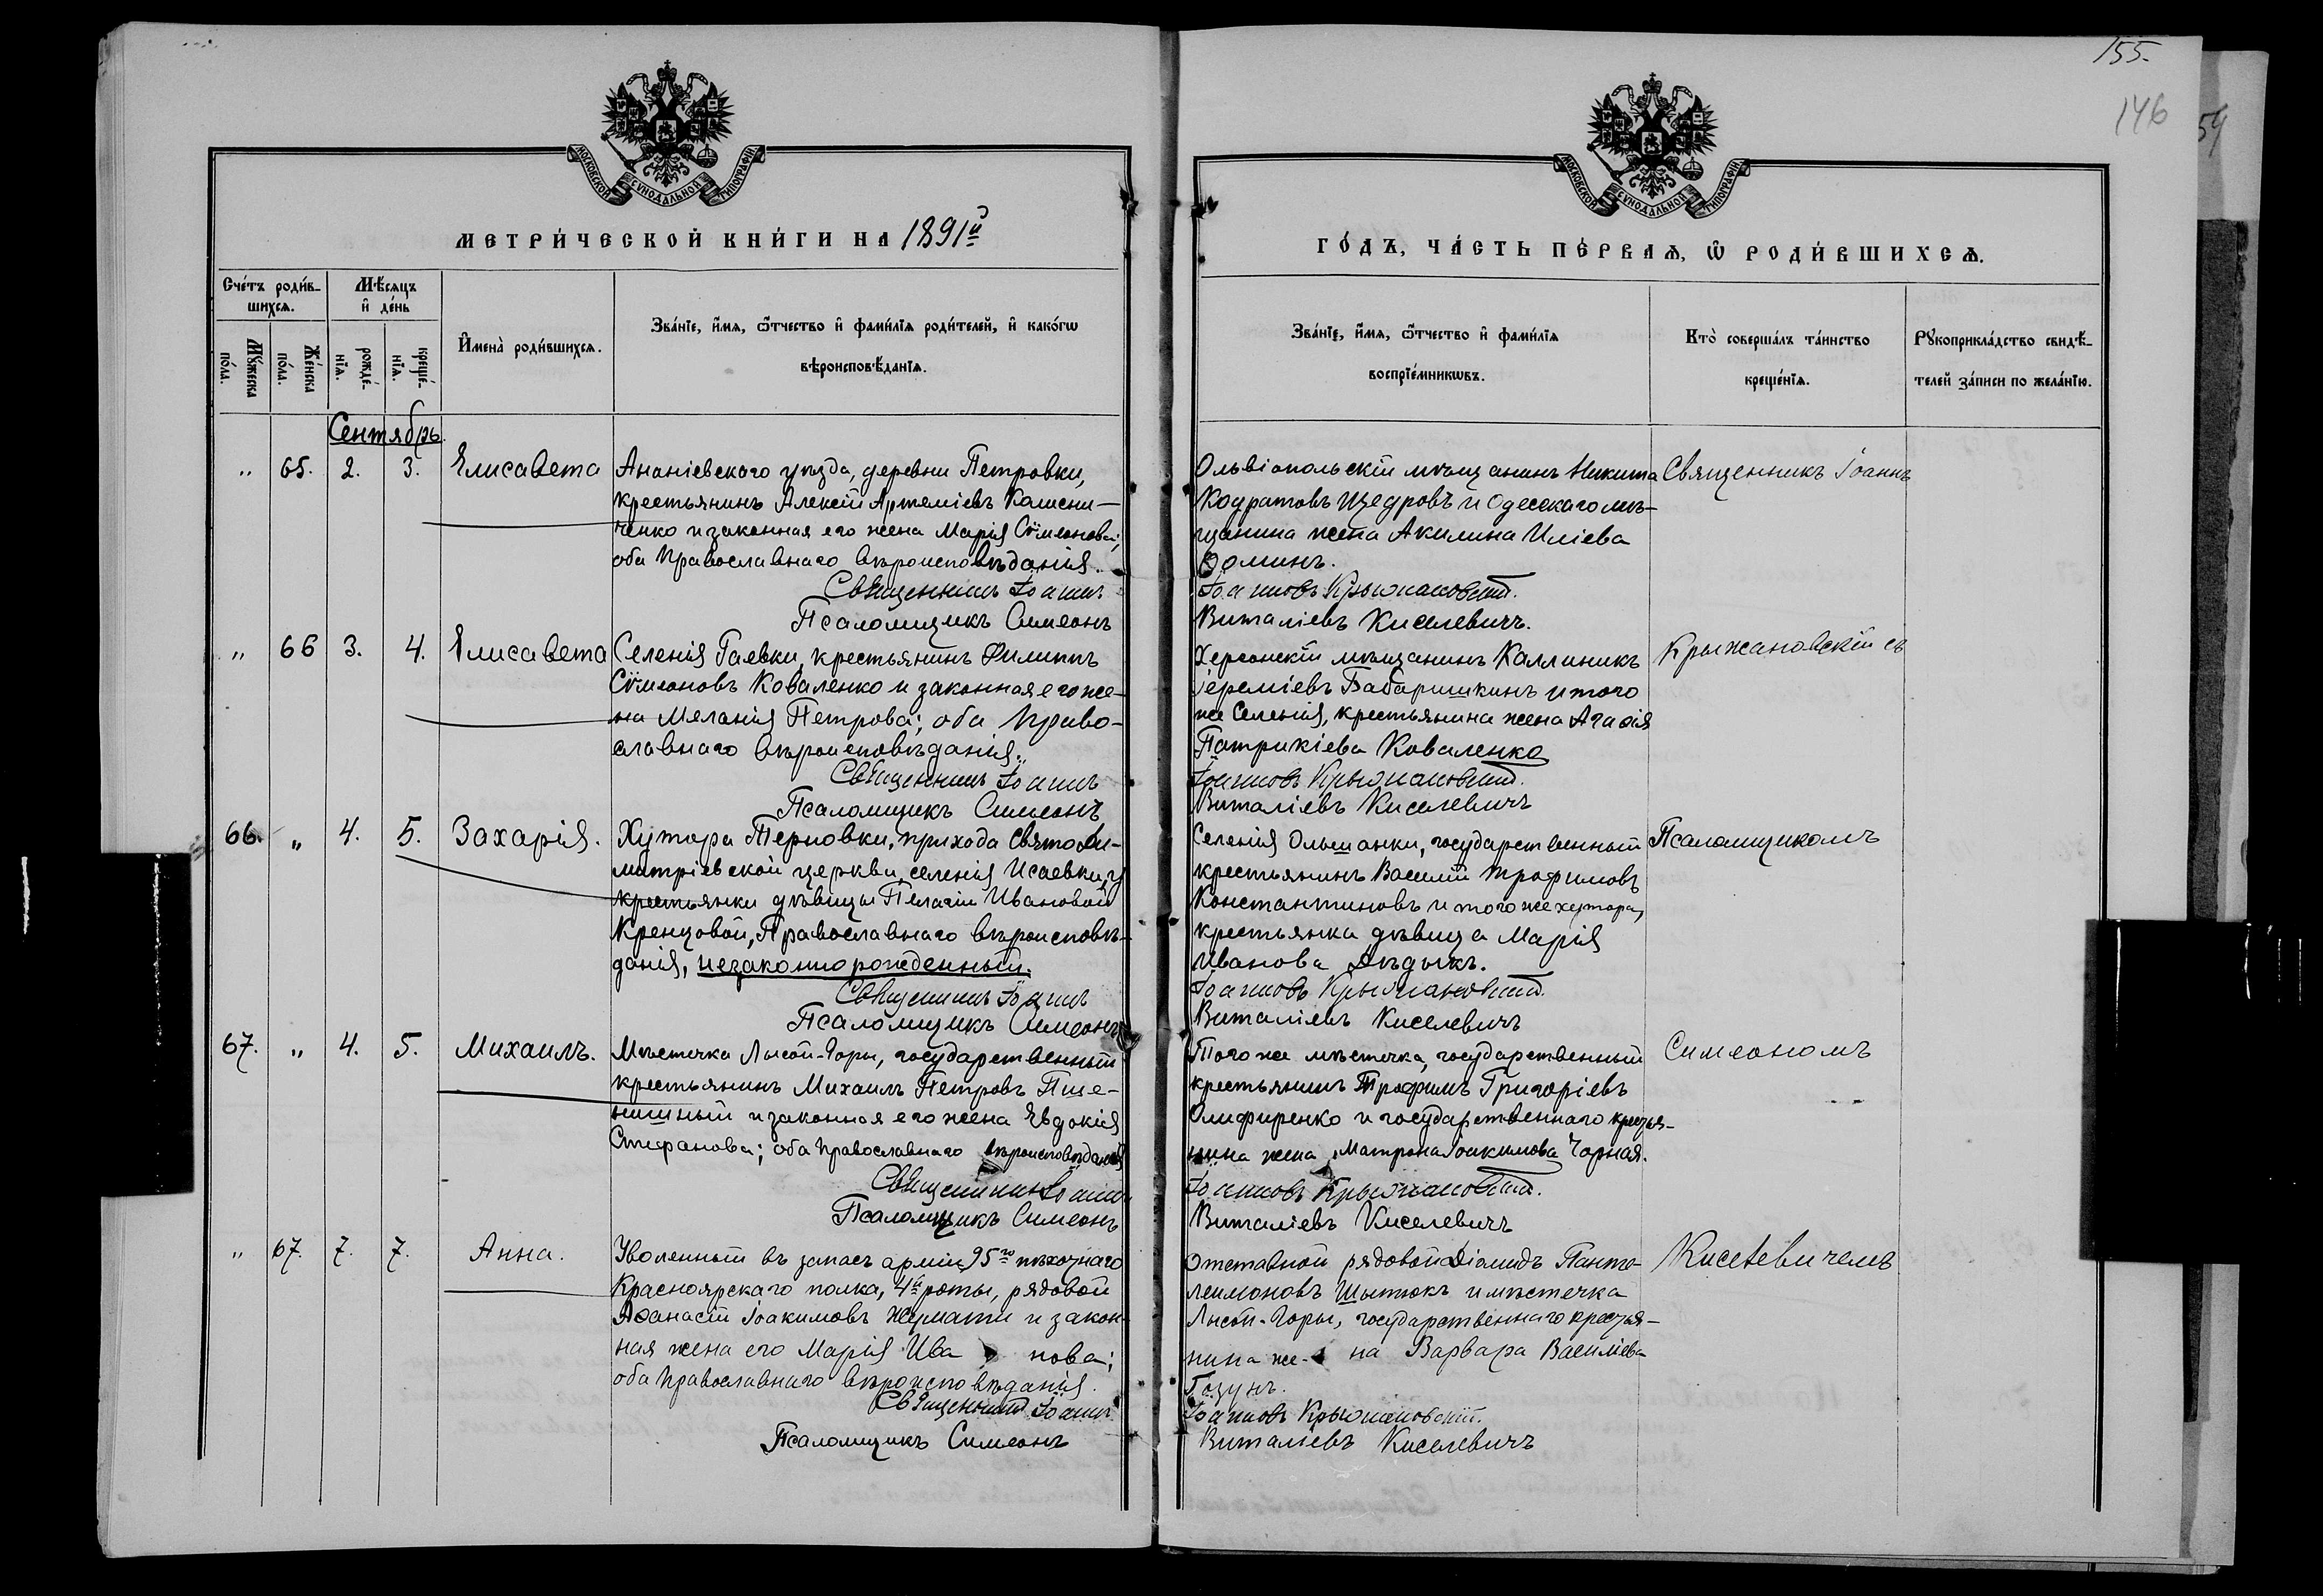 155.
146
54
МОСКОВСКОЙ СѴНОДАЛЬНОЙ ТИПОГРАФІИ
МЕТРИ́ЧЕСКОЙ КНИ́ГИ НА 1891й
Сче́тъ роди́в-
шихсѧ.
Мѣ́сѧцъ
и҆ де́нь
Мꙋ́жеска
по́ла.
Же́нска
по́ла.
рожде́-
нїѧ.
креще́-
нїѧ.
И҆мена̀ роди́вшихсѧ.
Зва́нїе, и҆́мѧ, ѻ҆́тчество и҆ фами́лїѧ роди́телей, и҆ како́гѡ
вѣроисповѣ́данїѧ.
Сентябрь.
„ 65. 2. 3. Елисавета Ананіевскаго уѣзда, деревни Петровки,
крестьянинъ Алексій Артеміевъ Камени-
ченко и законная его жена Марія Сѵмеонова;
оба Православнаго вѣроисповѣданія.
Священникъ Іоаннъ
Псаломщикъ Симеонъ
„ 66 3. 4. Елисавета Селенія Гаевки, крестьянинъ Филиппъ
Сѵмеоновъ Коваленко и законная его же-
на Меланія Петрова; оба Право-
славнаго вѣроисповѣданія.
Священникъ Іоаннъ
Псаломщикъ Симеонъ
66. „ 4. 5. Захарія. Хутора Терновки, прихода Свято Ди-
митріевской церкви, селенія Исаевки, у
крестьянки дѣвицы Пелагіи Ивановой
Кренцовой, Православнаго вѣроисповѣ-
данія, незаконнорожденный.
Священникъ Іоаннъ
Псаломщикъ Симеонъ
67. „ 4. 5. Михаилъ. Мѣстечка Лысой-Горы, государственный
крестьянинъ Михаилъ Петровъ Пше-
нишный и законная его жена Евдокія
Стефанова; оба Православнаго вѣроисповѣданія
Священникъ Іоаннъ
Псаломщикъ Симеонъ
„ 67. 7. 7. Анна. Уволенный въ запасъ арміи 95го пѣхотнаго
Красноярскаго полка, 4й роты, рядовой
Аѳанасій Іоакимовъ и закон-
ная жена его Марія Ива нова;
оба Православнаго вѣроисповѣданія.
Священникъ Іоаннъ
Псаломщикъ Симеонъ
МОСКОВСКОЙ СѴНОДАЛЬНОЙ ТИПОГРАФІИ
ГО́ДЪ, ЧА́СТЬ ПЕ́РВАѦ, Ѡ҆ РОДИ́ВШИХСѦ.
Зва́нїе, и҆́мѧ, ѻ҆́тчество и҆ фами́лїѧ
воспрїе́мникѡвъ.
Кто̀ соверша́лъ та́инство
креще́нїѧ.
Рꙋкоприкла́дство свидѣ́-
телей за́писи по жела́нїю.
Ольвіопольскій мѣщанинъ Никита
Кодратовъ Щедровъ и Одесскаго мѣ-
щанина жена Акилина Иліева
Ѳоминъ.
Іоанновъ Крыжановскій.
Виталіевъ Киселевичъ.
Херсонскій мѣщанинъ Каллиникъ
Іереміевъ Бабаришкинъ и того
же Селенія, крестьянина жена Агаѳія
Патрикіева Коваленко
Іоанновъ Крыжановскій.
Виталіевъ Киселевичъ
Селенія Ольшанки, государственный
крестьянинъ Василій Трофимовъ
Константиновъ и того же хутора,
крестьянка дѣвица Марія
Иванова Дѣдыкъ.
Іоанновъ Крыжановскій.
Виталіевъ Киселевичъ
Того же мѣстечка, государственный
крестьянинъ Трофимъ Григоріевъ
Олифиренко и государственнаго крестья-
нина жена, Матрона Іоакимова Чорная.
Іоанновъ Крыжановскій.
Виталіевъ Киселевичъ
Отставной рядовой Діомидъ Панте-
леимоновъ Шытюкъ и мѣстечка
Лысой-Горы, государственнаго крестья-
нина же- на Варвара Василіева
Іоанновъ Крыжановскій.
Виталіевъ Киселевичъ
Священникъ Іоаннъ
Крыжановскій съ
Псаломщикомъ
Симеономъ
Киселевичемъ